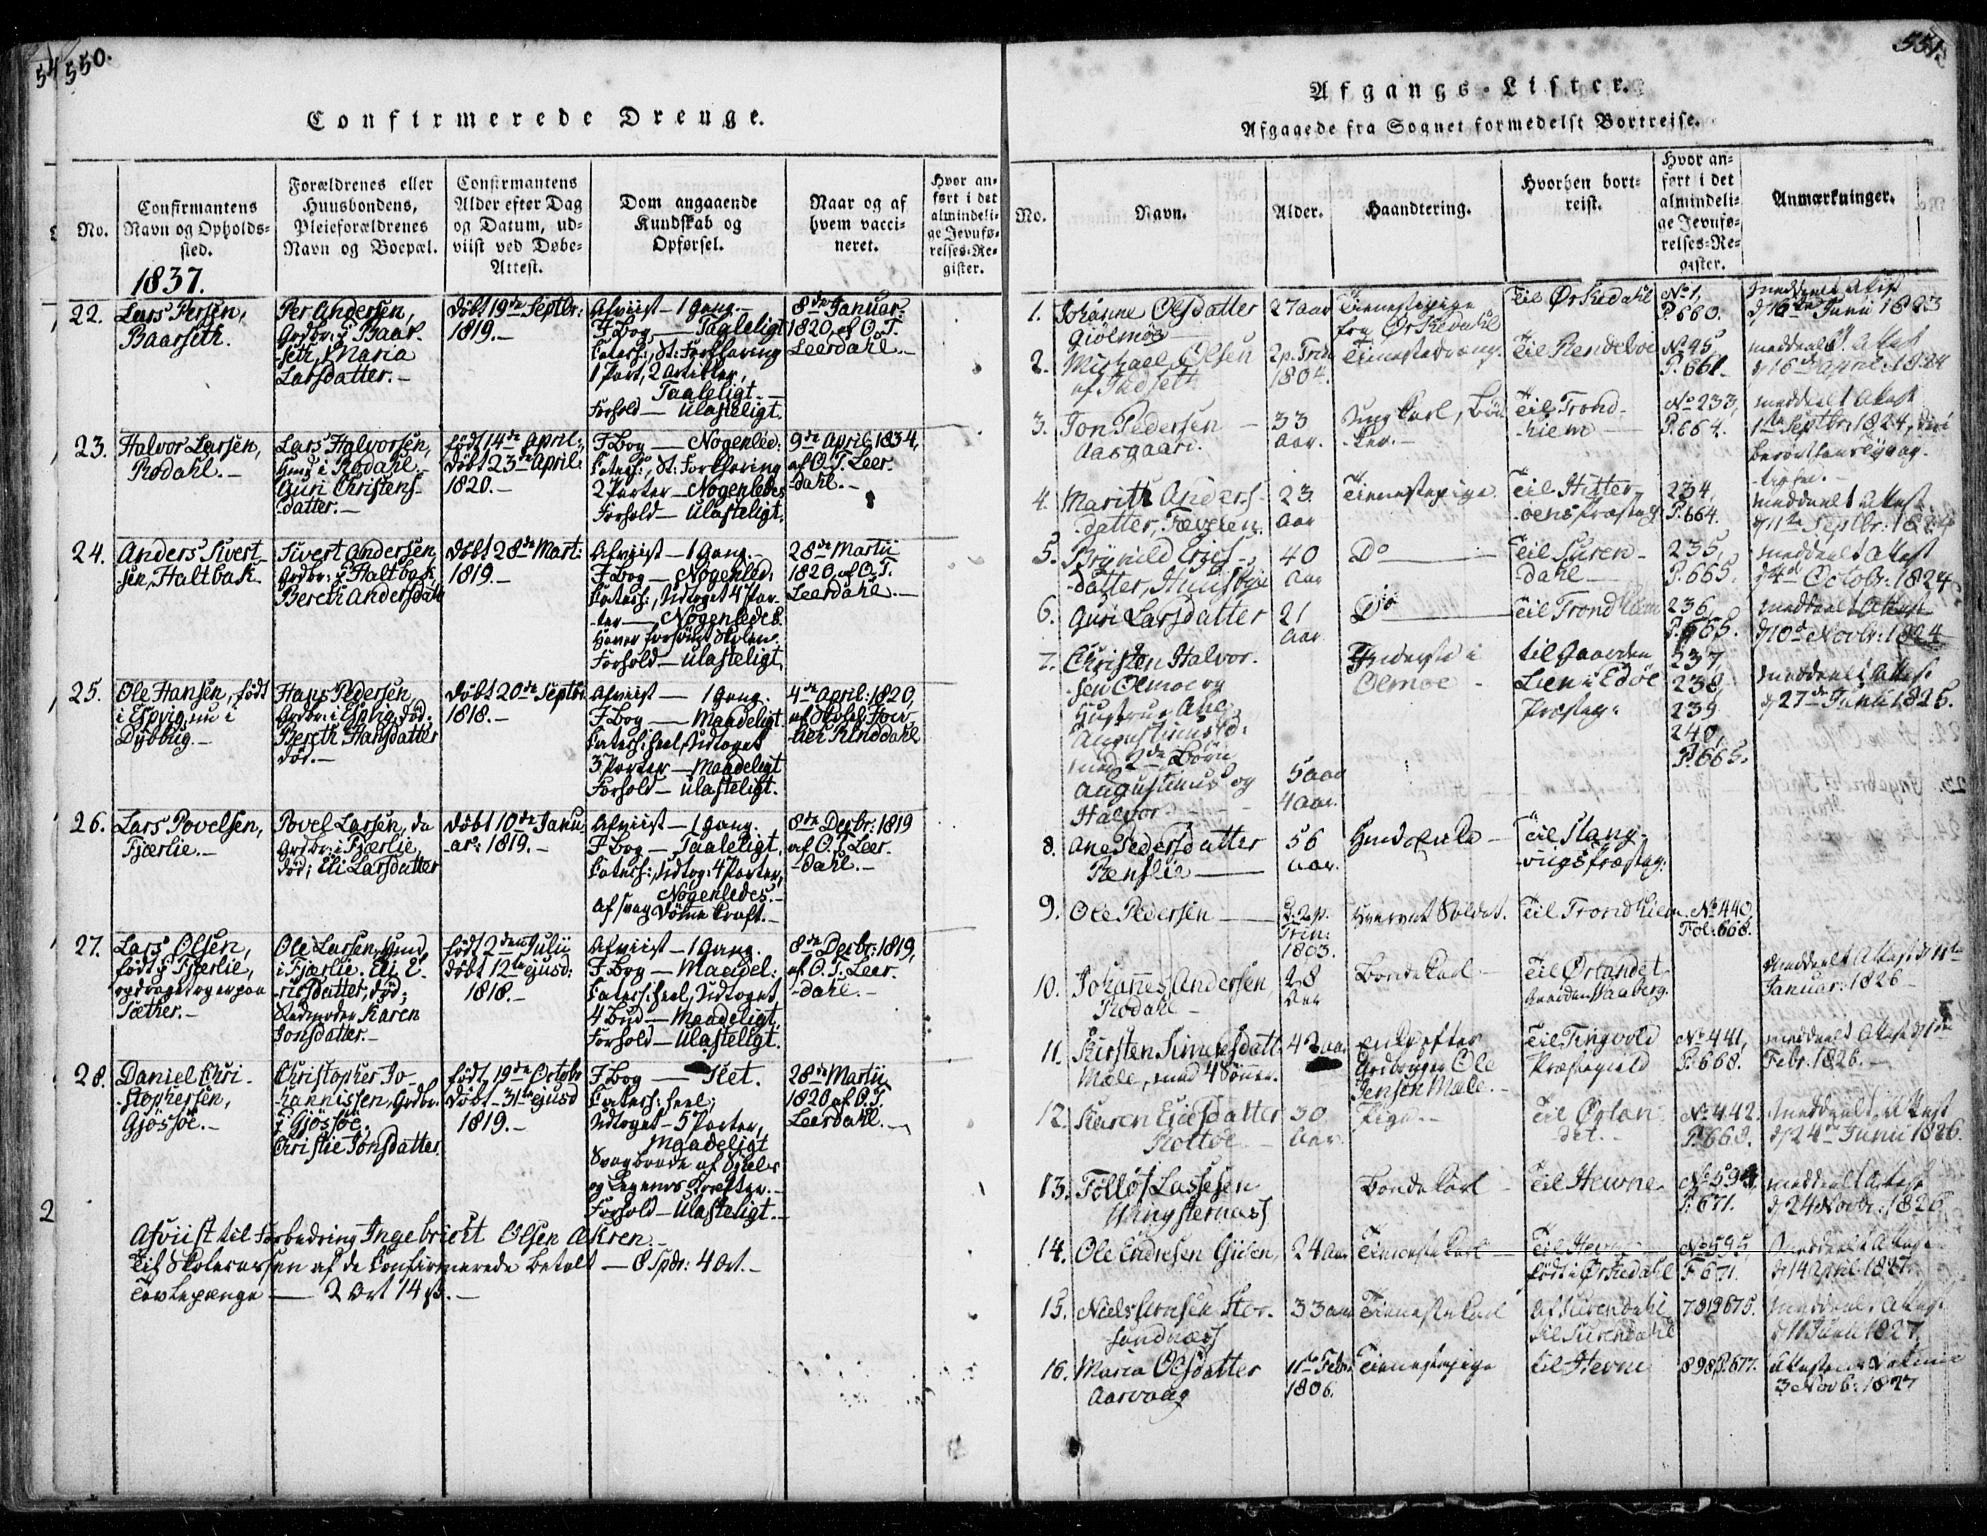 550.
Confirmerede Drenge.
No.
Confirmantens
Navn og Opholds-
sted.
1837.
Forældrenes eller
Huusbondens,
Pleieforældrenes
Navn og Boepæl.
Confirmantens
Alder efter Dag
og Datum, ud-
viist ved Døbe-
Attest.
Dom angaaende
Kundskab og
Opførsel.
Naar og af
hvem vacci-
neret.
Hvor an-
ført i det
almindeli-
ge Jevnfø-
relses-Re-
gister.
22.
Lars Persen,
Baarseth.
Per Andersen,
Grdbr: i Baar-
seth, Maria
Larsdatter.-
døbt 19de Septbr:
1819.-
Afviist - 1 Gang.-
F.bog - Taaleligt
Catech:, St: Forklaring
1 Part, 2 Artikler,
Taaleligt.-
Forhold - ulasteligt.
8de Januar:
1820 af O.T.
Leerdahl.-
23.
Halvor Larsen,
Rodahl.-
Lars Halvorsen,
Hmd i Rodahl.
Guri Christens-
datter.-
født 14de April:,
døbt 23de April:
1820.-
F.bog - Nogenled:
Catech:, St: Forklaring
2 Parter - Nogenledes
Forhold - ulasteligt.
9de April 1834,
af O.T. Leer-
dahl.-
24.
Anders Sivert-
sen, Haltbak.
Sivert Andersen,
Grdbr: i Haltbak,
Bereth Andersdatt
døbt 28de Mart:
1819.-
Afviist - 1 Gang.-
F.bog - Nogenled:
Catech:, Udtoget 4 Par-
ter - Nogenledes.
Haver forsømt Skolen.
Forhold - ulasteligt.
28de Martii
1820 af O.T.
Leerdahl.-
25.
Ole Hansen, født
i Espvig, nu i
Dydbug.-
Hans Pedersen
Grdbr: i Espvig, død.
Bereth Hansdatter
død.-
døbt 20de Septbr:
1818.-
Afviist - 1 Gang.
F.bog - Maadeligt.
Catech: heel, Udtoget
3 Parter - Maadeligt
Forhold - ulasteligt.
4de April: 1820,
af
Rinddahl
26.
Lars Povelsen,
Fjærlie.-
Povel Larsen, da
Grdbr: i Fjærlie,
død; Eli Larsdatter
døbt 10de Janu-
ar: 1819.-
Afviist - 1 Gang.
F.bog - Taaleligt.
Catech:, Udtog: 4 Parter,
Nogenledes.-
af svag Dømmekraft.-
8de Decbr: 1819
af O.T. Leer-
dahl.-
27.
Lars Olsen,
født i Fjærlie,
opdraget og er paa
Sæther.-
Ole Larsen, Hmd
i Fjærlie. Eli E-
richsdatter, død;
Stedmoder Karen
Jonsdatter.-
født 2den Julii
døbt 12te ejusd:
1818.-
Afviist - 1 Gang.
F.bog - Maadel:
Catech: heel, Udtoget
4 Bud - Maadeligt.
Forhold - ulasteligt.
8de Decbr: 1819,
af O.T. Leer-
dahl.-
28.
Daniel Chri-
stophersen,
Gjøssøe.-
Christopher Jo-
hannissen, Grdbr:
i Gjøssøe.
Christie Jonsdatter.
født 19de Octobr
døbt - 31te ejusd
1819.-
F.bog - Slet.
Catech: heel,
Udtoget - 5 Parter,
Maadeligt
Svag baade af Sjels
og Legems Kræfter.-
Forhold - ulasteligt.-
28de Martii
1820 af O.T.
Leerdahl.-
2
Afviist til Forbedring Ingebricht Olsen Akren.-
Til Skolecassen af de Confirmerede betalt - 6 Spdr: 4 Ort.-
Tavlepænge - 2 Ort 14 s.-
551.
Afgangs-Lister.
Afgaaede fra Sognet formedelst Bortreise.
No.
Navn.
Alder.
Haandtering.
Hvorhen bort-
reist.
Hvor an-
ført i det
almindeli-
ge Jevnfø-
relses-Re-
gister.
Anmærkninger.
1.
Johanne Olsdatter
Giølmøe
27 aar
Tienestepige
fra Ørkedahl
Til Ørkedahl
No 1,
P. 660.
meddeelt Attest
d 16de Junii 1823
2.
Michael Olsen
2 p. Trin
1804.
Tienestedreng.
Til
No 45
P. 661.
meddeelt Attest
d 16de April: 1824
3.
Jon Pedersen
Aasgaard.
33
Aar.
Ungkarl,
Til Trond-
hiem
No 233,
P. 664.
meddeelt Attest
1ste Septbr: 1824,
4.
Marith Anders-
datter, Tæveren.
23
Aar
Tienestepige
Til Hitter-
øens Præsteg:
234,
P. 664.
meddeelt Attest
d 11te Septbr: 1824
5.
Brynild Erics-
datter, Huusbye
40
Aar
Do
Til Suren-
dahl
235,
P. 665.
meddeelt Attest
d 4de Octobr: 1824
6.
Guri Larsdatter
21
Aar
Do
Til Trondhiem
236,
P. 665.
meddeelt Attest
d 10de Novbr: 1824
7.
Christen Halvor-
sen Ølmoe og
Hustrue Ane
Augustinusd:
med 2de Børn
Augustinus og
Halvor
5 aar
4 aar.
Inderste i
Ølmoe
til Gaarden
Lien i Edøe
Præsteg:
237
238,
239
240,
P. 665.
meddeelt Attest
d 27de Junii 1825.
8.
Ane Pedersdatter
Renslie
56
Aar.
Til Stang-
vigs Præsteg:
9.
Ole Pedersen
2. p.
Trin:
1803.
Hvervet Soldat.
Til Trondhiem
No 440,
Fol: 668.
10.
Johannes Andersen,
Rodahl -
28
Aar
Bondekarl
Til Ørlandet
Gaarden
meddeelt Attest d 11te
Januar: 1826 -
11.
Kirsten Simensdatt:
Mæle, med 4 Sønner.
42 aar
enke efter
Grdbruger Ole
Jensen Mæle.-
Til Tingvold
Præstegield
No 441,
P. 668.
meddeelt Attest d 1ste
Febr: 1826.-
12.
Karen Ericsdatter
Rottøe
30
Aar.
Pige.-
Til Ørlan-
det.-
No 442.
P. 668.
meddeelt Attest
d 24de Junii 1826.
13.
Tølløf Lassesen
Bondekarl
Til Hevne
No 594
P. 671.
meddeelt Attest
d 24 Novbr: 1826
14.
Ole Endresen Gjøen,
24 Aar
Tienestekarl
Til Hevne
født i Ørkedahl
No 595
F. 671.
meddeelt Attest
d 14 April 1827.
15.
Niels Arnesen Stor-
sandnæss
33 aar
Tienestekarl
af Surendahl
til Surendahl
P 675.
meddeelt Attest
d 11 Junii 1827.
16.
Maria Olsdatter
Aarvaag
11te Febr:
1806.
Tienestepige
til Hevne
898 P. 677.
Attesten
3 Novb: 1827